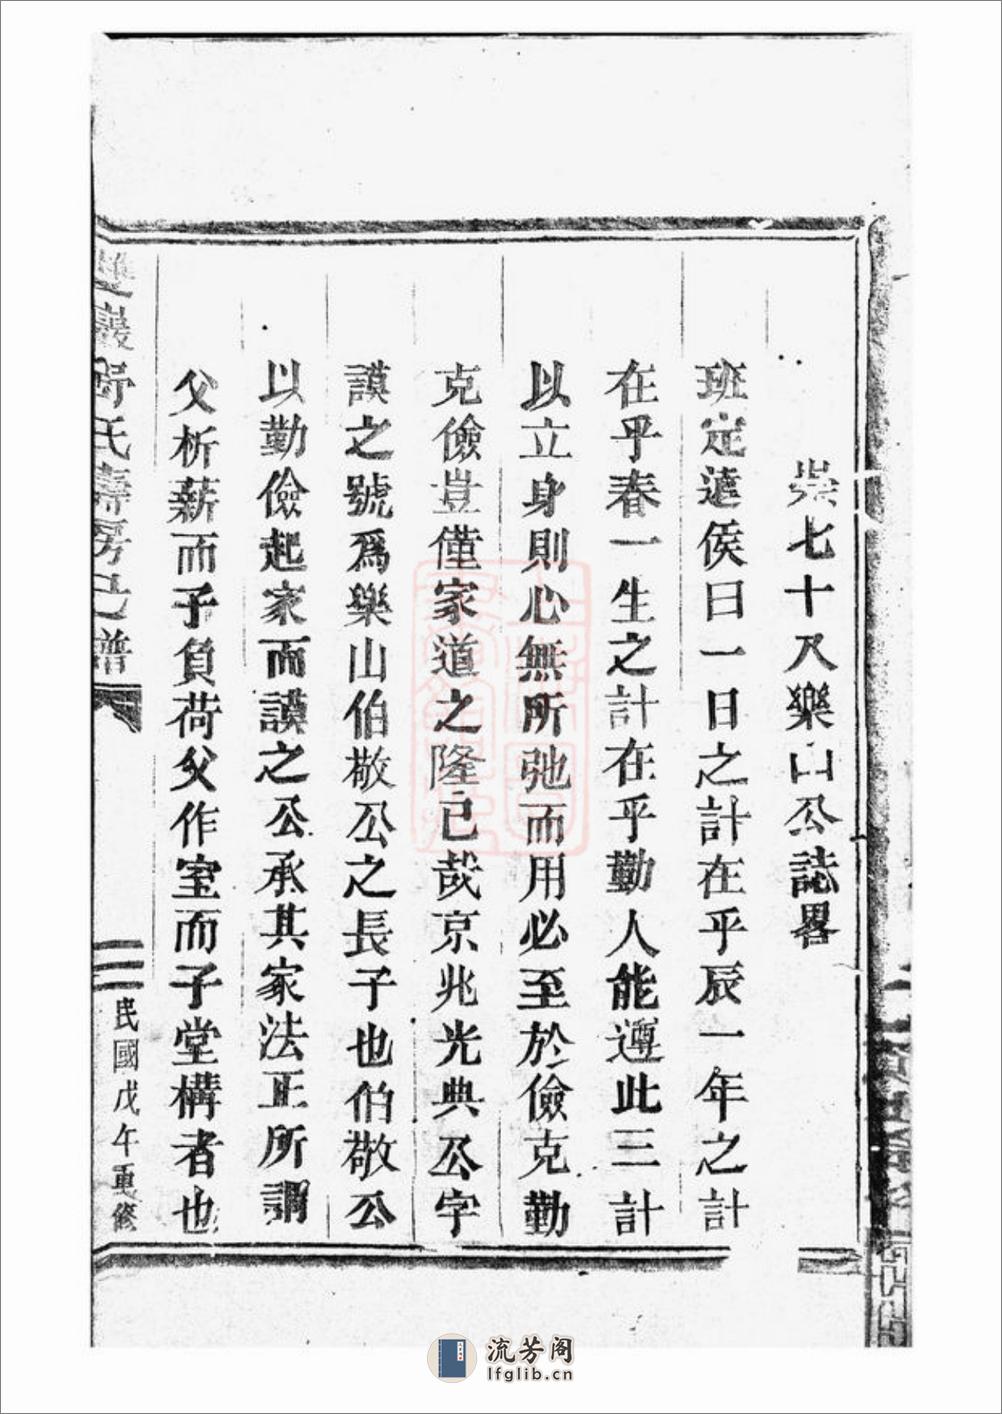 崇七十八樂山公誌畧
班定遠侯曰一日之計在乎辰一年之計
在乎春一生之計在乎勤人能遵此三計
以立身則心無所弛而用必至於儉克勤
克儉豈僅家道之隆已哉京兆光典公字
謨之號爲樂山伯敬公之長子也伯敬公
以勤儉起家而謨之公承其家法正所謂
父析薪而子負荷父作室而子堂構者也
巖舒氏壽房己譜
三
民國戊午重修
流芳阁
lfglib.cn